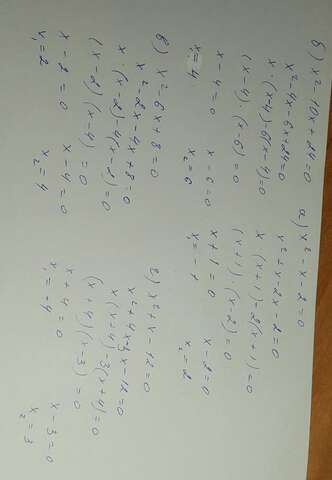 б) x² - 10x + 24 = 0
x² - 4x - 6x + 24 = 0
x · (x - 4) - 6(x - 4) = 0
(x - 4) · (x - 6) = 0
x - 4 = 0 x - 6 = 0
x₁ = 4 x₂ = 6
а) x² - x - 2 = 0
x² + x - 2x - 2 = 0
x (x + 1) - 2(x + 1) = 0
(x + 1) · (x - 2) = 0
x + 1 = 0 x - 2 = 0
x = -1 x₂ = 2
в) x² - 6x + 8 = 0
x² - 2x - 4x + 8 = 0
x · (x - 2) - 4(x - 2) = 0
(x - 2) (x - 4) = 0
x - 2 = 0 x - 4 = 0
x₁ = 2 x₂ = 4
г) x² + x - 12 = 0
x² + 4x - 3x - 12 = 0
x (x + 4) - 3(x + 4) = 0
(x + 4) (x - 3) = 0
x + 4 = 0 x - 3 = 0
x₁ = -4 x₂ = 3